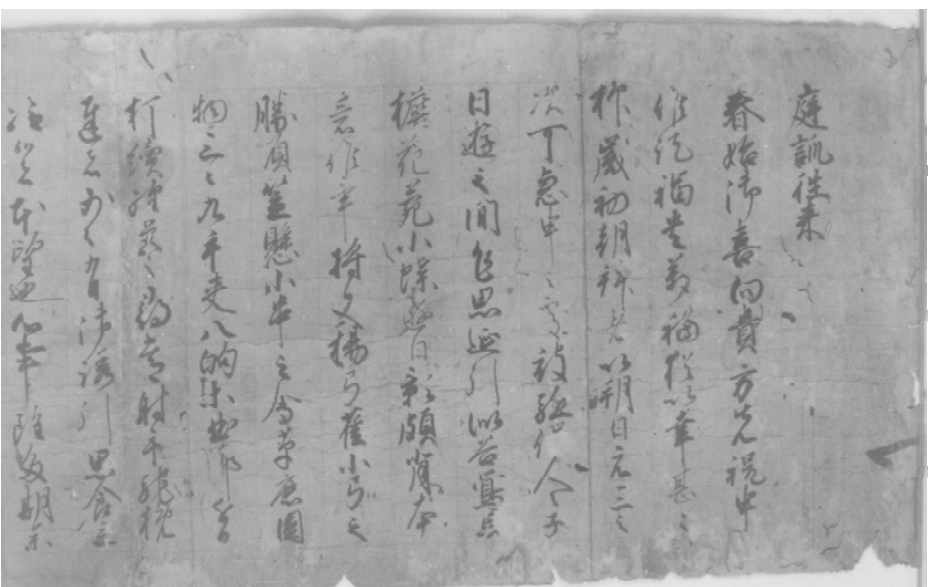 庭訓徃来
春始御喜向貴方先祝申
候訖冨貴万福猶以幸甚々
抑歳初朝拝者以朔日元三之
次可急申之処被駈催人々子
日遊之間乍思延引似谷鴬忘
檐花苑小蝶遊日影頗背本
意候畢将又楊弓雀小弓之
勝負笠懸小串之会草鹿円
物三々九手夾八的等曲節
打続経営之尋常射手馳挽
達者少々有御誘引思食立
給者本望也心事雖多期